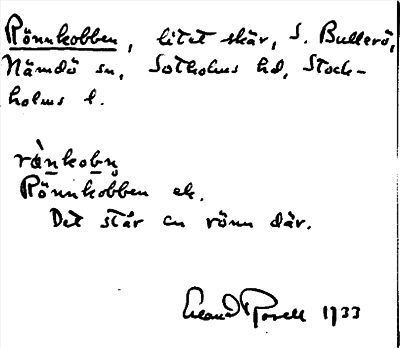 Rönnkobben, litet skär, S. Bullerö,
Nämdö sn, Sotholms hd, Stock-
holms l.
rànkobn̥
Rönnkobben ek.
Det står en rönn där.
Erland Rosell 1933